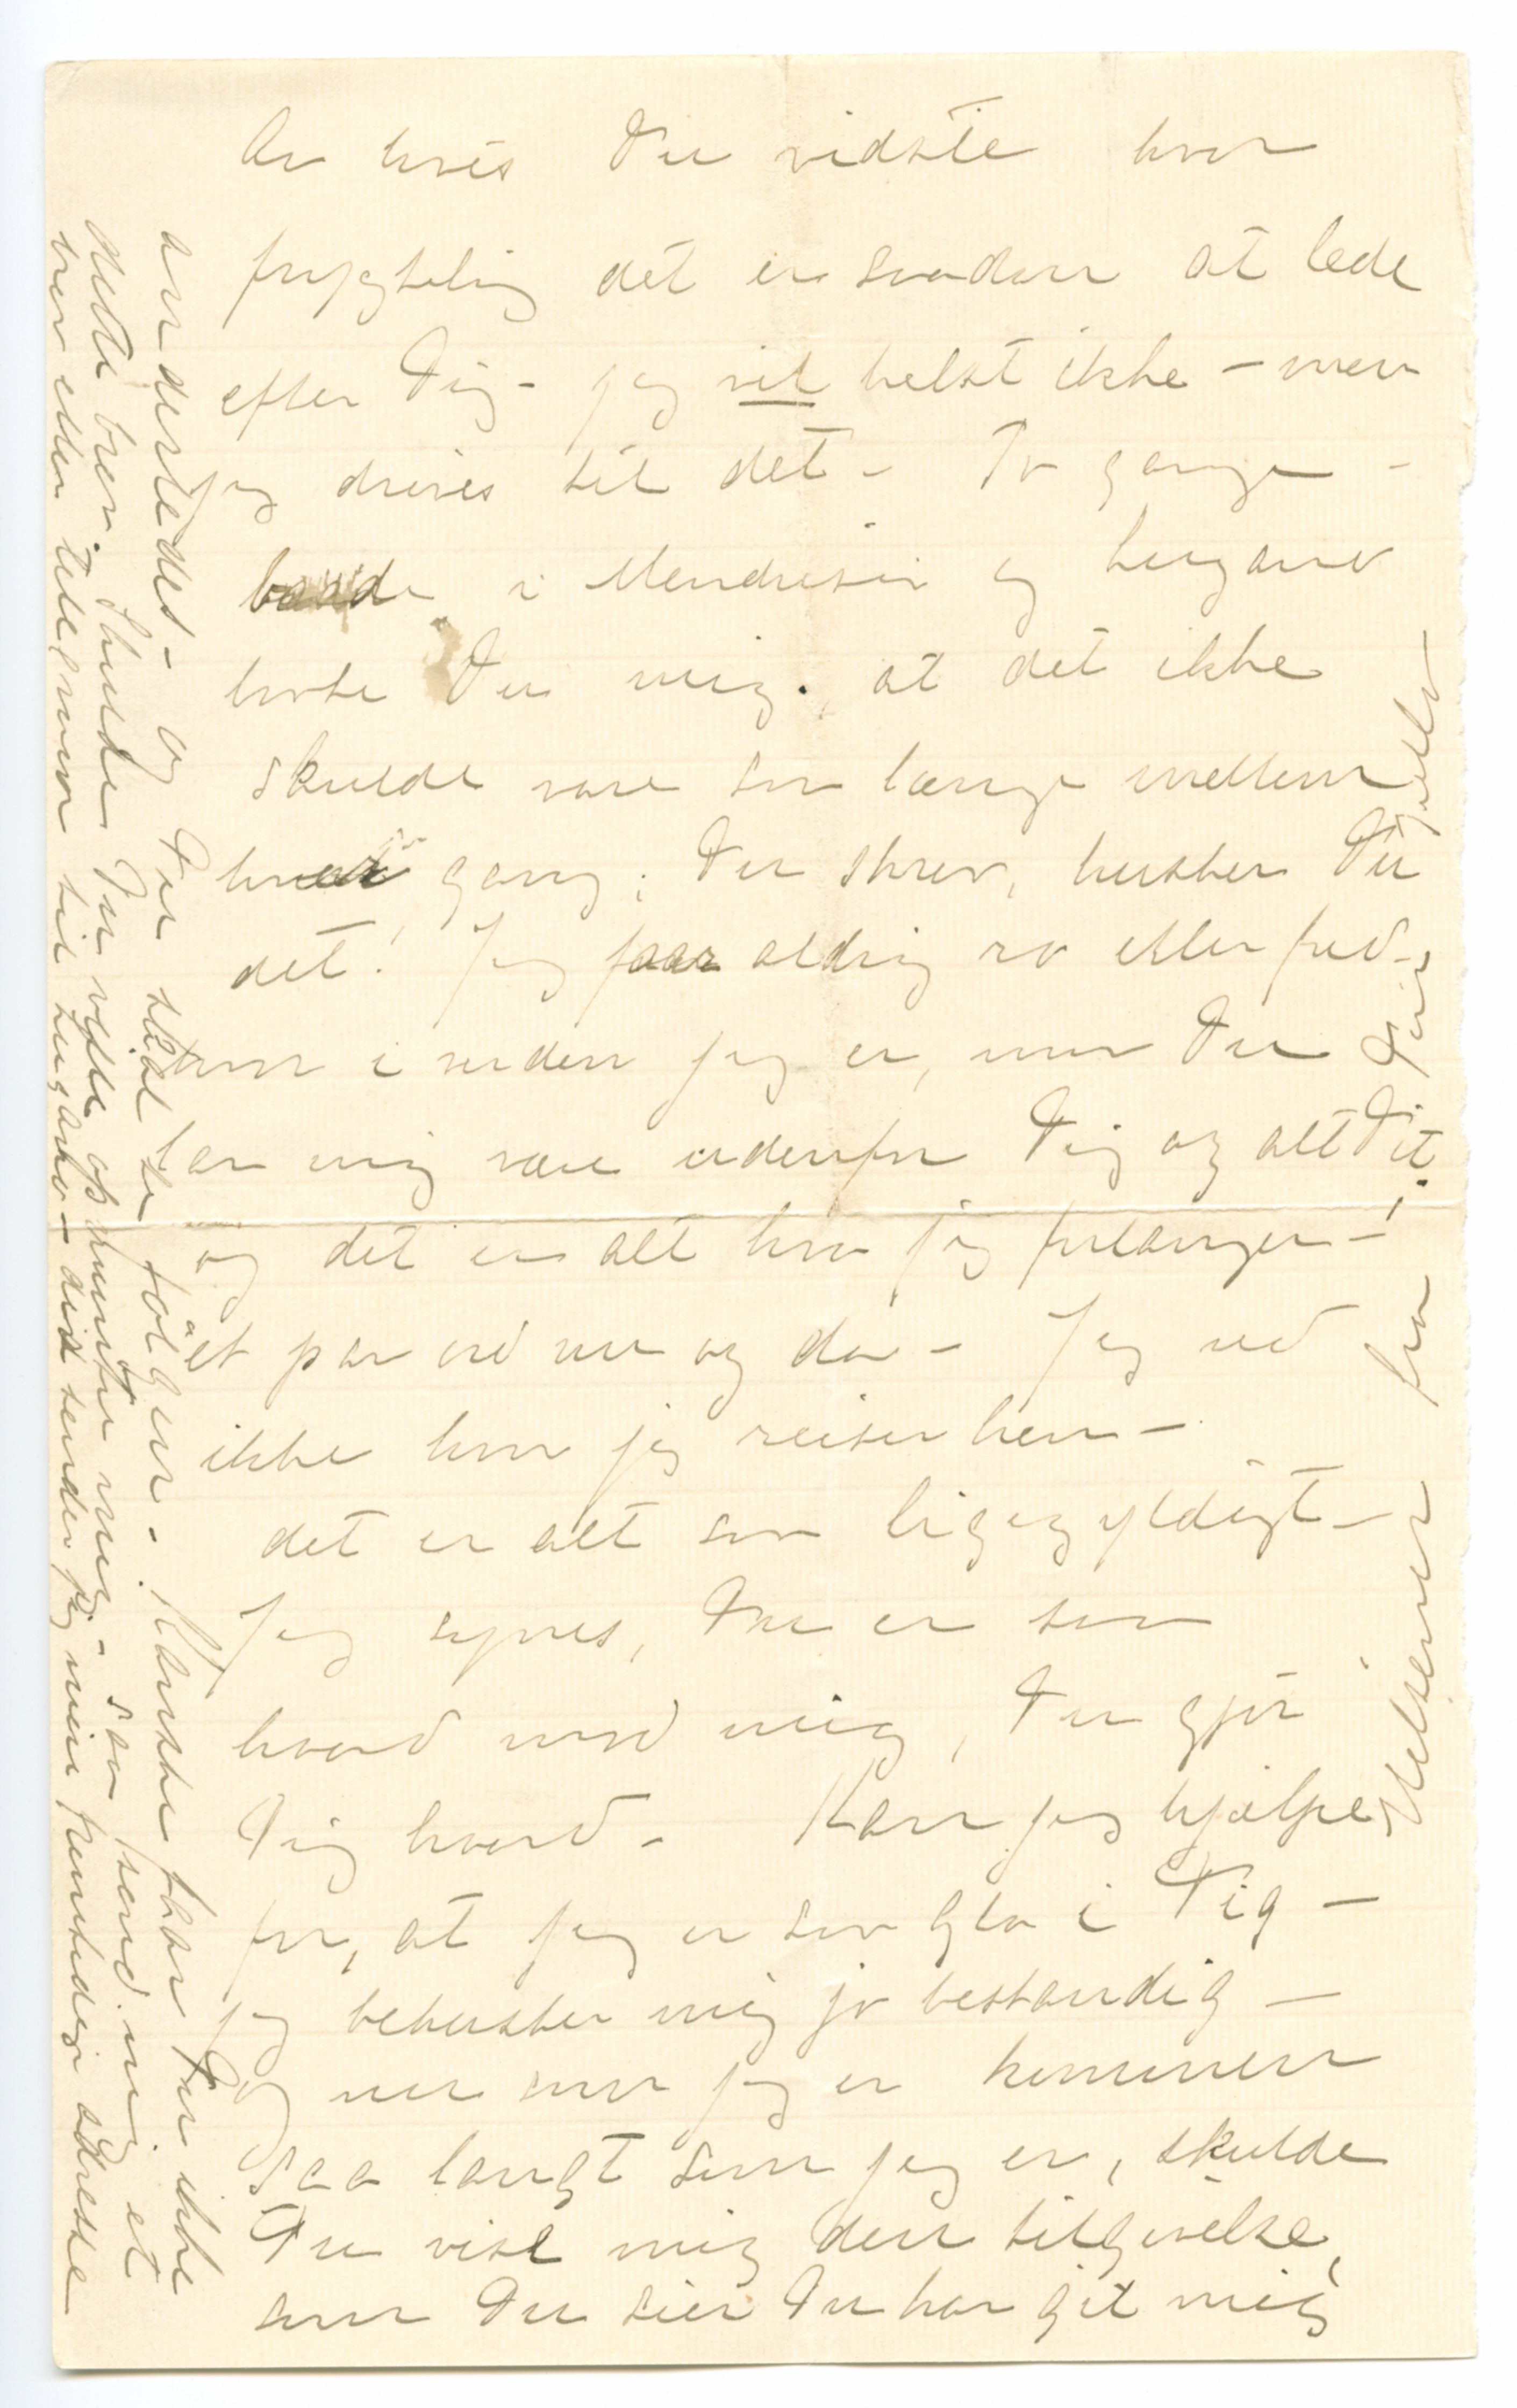 Aa hvis Du vidste hvor
frygtelig det er saadan at lede
efter Dig – jeg vil helst ikke – men
jeg drives til det – To gange –
baade i Mendrisio og Lugano
lovte Du mig, at det ikke
skulde vare saa længe mellem
hver gang, Du skrev, husker Du
det! Jeg faar aldrig ro eller fred –
hvor i verden jeg er, naar Du
lar mig være udenfor Dig og alt Dit!
og det er alt hva jeg forlanger –
et par ord nu og da – Jeg ved
ikke hvor jeg reiser hen –
det er alt saa ligegyldigt –
Jeg synes, Du er saa
haard mod mig, Du gjør
Dig haard – Kan jeg hjælpe
for, at jeg er saa gla i Dig –
jeg behersker mig jo bestandig –
Og nu naar jeg er kommen
saa langt som jeg er, skulde
Du vise mig den tilgivelse,
som Du sier Du har git mig
anderledes – og Du skal se følgen – Kanske har Du ikke
dette brev. Skulde Du ville opmuntre mig – saa send mig et
brev eller telegram til Lugano – did sender jeg min fremtidige adresse
Hilsener fra Din